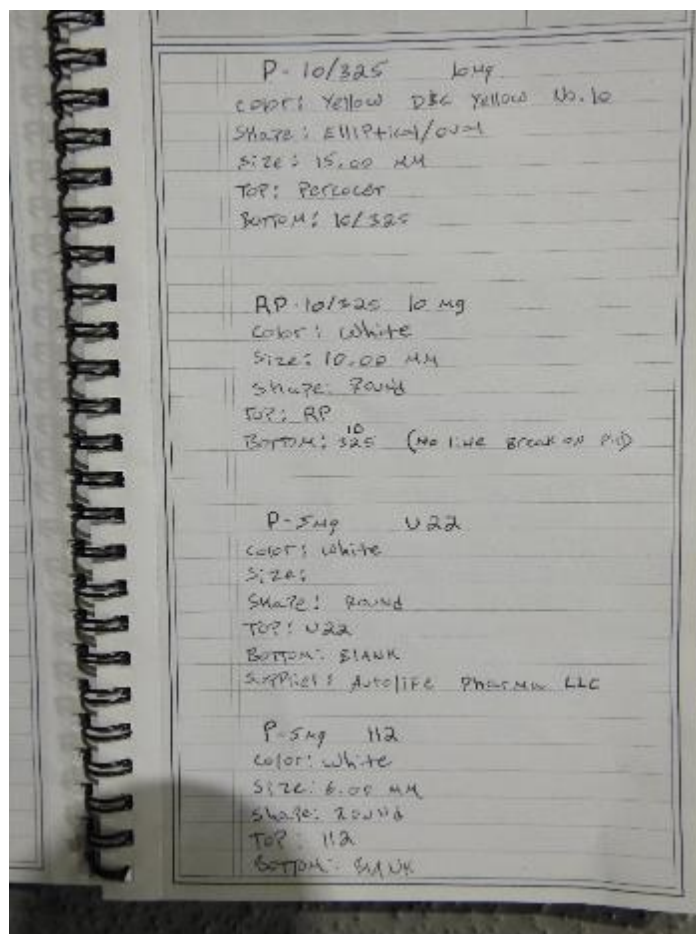 P- 10/325 10mg
color: Yellow D&C Yellow No. 10
Shape: Elliptical/oval
Size: 15.00 MM
TOP: Percocet
Bottom: 10/325
RP-10/325 10 mg
Color: White
Size: 10.00 MM
Shape: Round
TOP: RP
Bottom: 10/325 (No line Break on Pill)
P-5mg U22
Color: White
Size:
Shape: Round
TOP: U22
Bottom: BLANK
Supplier: Autolife Pharma LLC
P-5mg 112
Color: White
Size: 6.00 MM
Shape: Round
TOP: 112
Bottom: BLANK